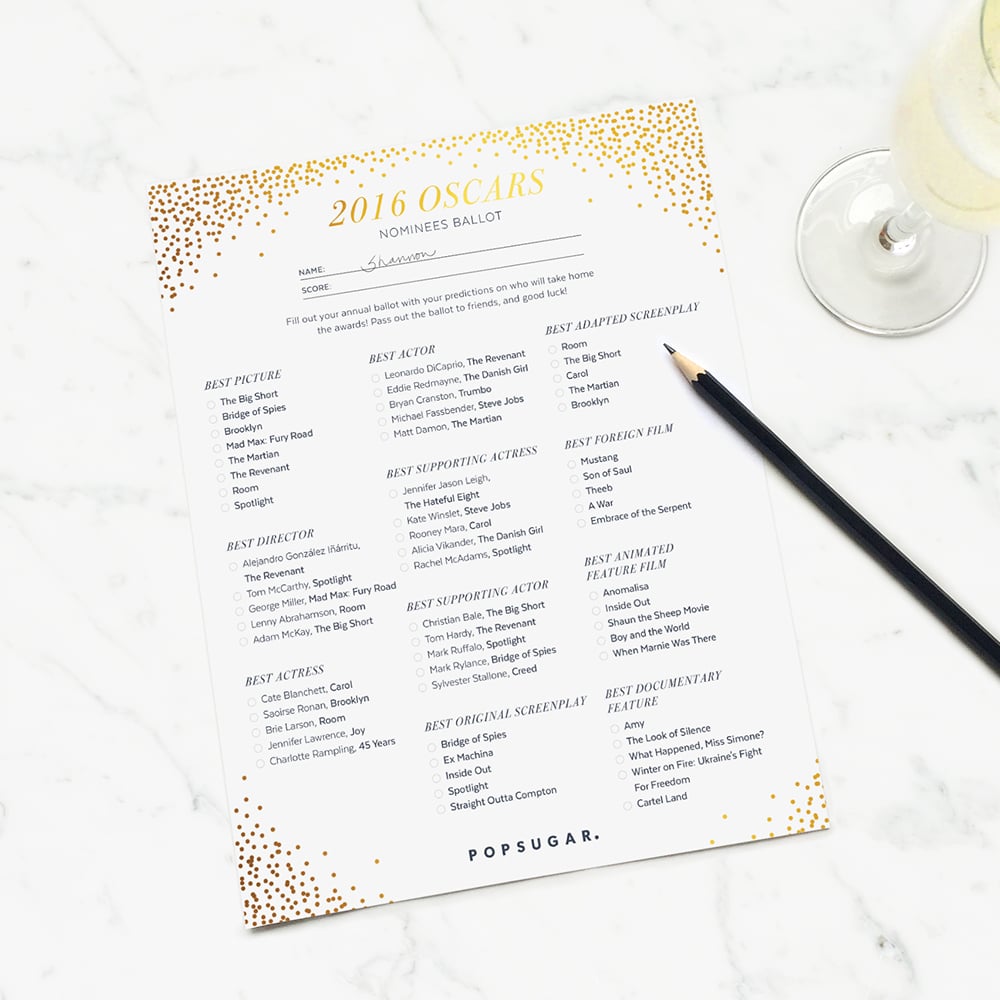 2016 OSCARS
NOMINEES BALLOT
NAME: Shannon
SCORE:
Fill out your annual ballot with your predictions on who will take home
the awards! Pass out the ballot to friends, and good luck!
BEST PICTURE
The Big Short
Bridge of Spies
Brooklyn
Mad Max: Fury Road
The Martian
The Revenant
Room
Spotlight
BEST DIRECTOR
Alejandro González Iñárritu,
The Revenant
Tom McCarthy, Spotlight
George Miller, Mad Max: Fury Road
Lenny Abrahamson, Room
Adam McKay, The Big Short
BEST ACTRESS
Cate Blanchett, Carol
Saoirse Ronan, Brooklyn
Brie Larson, Room
Jennifer Lawrence, Joy
Charlotte Rampling, 45 Years
BEST ACTOR
Leonardo DiCaprio, The Revenant
Eddie Redmayne, The Danish Girl
Bryan Cranston, Trumbo
Michael Fassbender, Steve Jobs
Matt Damon, The Martian
BEST SUPPORTING ACTRESS
Jennifer Jason Leigh,
The Hateful Eight
Kate Winslet, Steve Jobs
Rooney Mara, Carol
Alicia Vikander, The Danish Girl
Rachel McAdams, Spotlight
BEST SUPPORTING ACTOR
Christian Bale, The Big Short
Tom Hardy, The Revenant
Mark Ruffalo, Spotlight
Mark Rylance, Bridge of Spies
Sylvester Stallone, Creed
BEST ORIGINAL SCREENPLAY
Bridge of Spies
Ex Machina
Inside Out
Spotlight
Straight Outta Compton
BEST ADAPTED SCREENPLAY
Room
The Big Short
Carol
The Martian
Brooklyn
BEST FOREIGN FILM
Mustang
Son of Saul
Theeb
A War
Embrace of the Serpent
BEST ANIMATED
FEATURE FILM
Anomalisa
Inside Out
Shaun the Sheep Movie
Boy and the World
When Marnie Was There
BEST DOCUMENTARY
FEATURE
Amy
The Look of Silence
What Happened, Miss Simone?
Winter on Fire: Ukraine's Fight
For Freedom
Cartel Land
POPSUGAR.